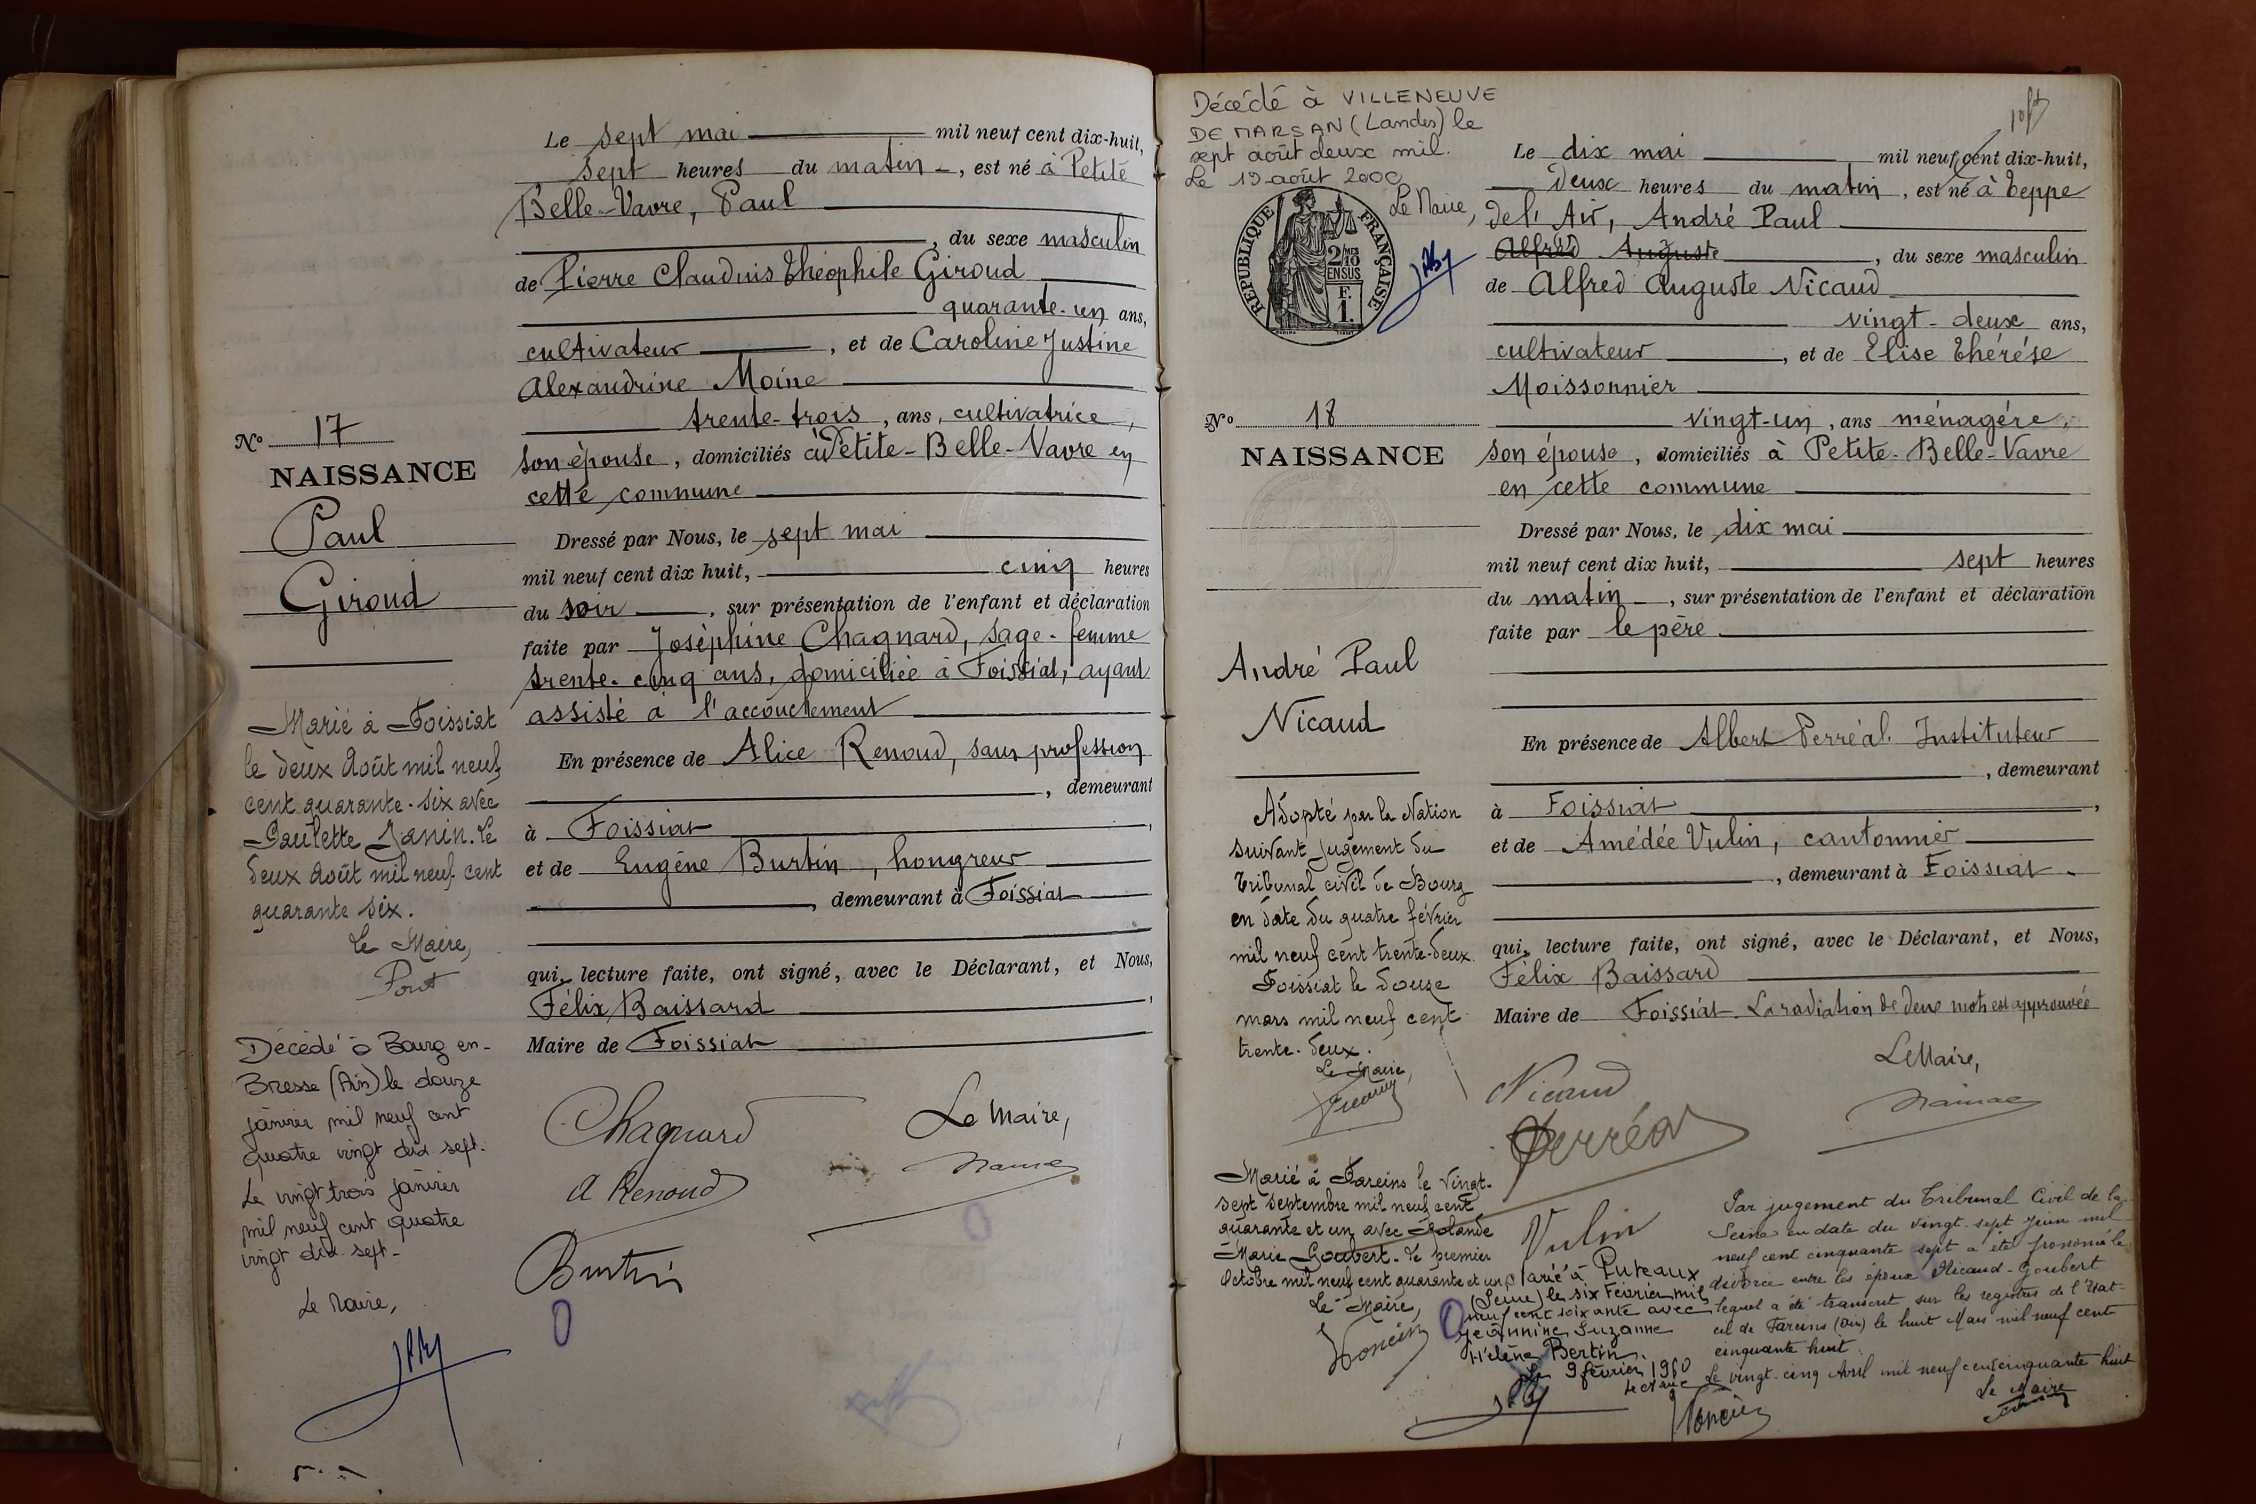 Le sept mai mil neuf cent dix-huit,
sept heures du matin, est né à Petite
Belle-Vavre, Paul
, du sexe masculin
de Pierre Claudius Théophile Giroud
quarante-un ans,
cultivateur, et de Caroline Justine
Alexandrine Moine
trente-trois, ans, cultivatrice,
son épouse, domiciliés à Petite-Belle-Vavre en
cette commune
Dressé par Nous, le sept mai
mil neuf cent dix huit, cinq heures
du soir, sur présentation de l'enfant et déclaration
faite par Joséphine Chagnard, sage-femme
trente-cinq ans, domiciliée à Foissiat, ayant
assisté à l'accouchement
En présence de Alice Renoud, sans profession
, demeurant
à Foissiat,
et de Eugène Burtin, hongreur
, demeurant à Foissiat
qui, lecture faite, ont signé, avec le Déclarant, et Nous,
Félix Baissard,
Maire de Foissiat
Chagnard
Le Maire,
A Renoud
Burtin
No 17
NAISSANCE
Paul
Giroud
Marié à Foissiat
le deux Août mil neuf
cent quarante-six avec
Paulette Janin. Le
deux Août mil neuf cent
quarante six.
Le Maire,
Décédé à Bourg en-
Bresse (Ain) le douze
janvier mil neuf cent
quatre vingt dix sept.
Le vingt trois janvier
mil neuf cent quatre
vingt dix sept-
Le Maire,
Décédé à VILLENEUVE
DE MARSAN (Landes) le
sept août deux mil.
Le 19 août 2000
Le Maire,
RÉPUBLIQUE FRANÇAISE
2/10
EN SUS
F.
1.
No 18
NAISSANCE
André Paul
Nicaud
Adopté par la Nation
suivant jugement du
Tribunal civil de Bourg
en date du quatre février
mil neuf cent trente-deux.
Foissiat le douze
mars mil neuf cent
trente-deux.
Le Maire,
Marié à Fareins le Vingt-
sept septembre mil neuf cent
quarante et un avec Yolande
Marie Goubert. Le premier
Octobre mil neuf cent quarante et un
Le Maire,
Le dix mai mil neuf cent dix-huit,
deux heures du matin, est né à Teppe
de l'Air, André Paul
Alfred Auguste, du sexe masculin
de Alfred Auguste Nicaud
vingt-deux ans,
cultivateur, et de Elise Thérèse
Moissonnier
vingt-un, ans ménagère,
son épouse, domiciliés à Petite-Belle-Vavre
en cette commune
Dressé par Nous, le dix mai
mil neuf cent dix huit, sept heures
du matin, sur présentation de l'enfant et déclaration
faite par le père
En présence de Albert Perréal Instituteur
, demeurant
à Foissiat,
et de Amédée Vulin, cantonnier
, demeurant à Foissiat.
qui, lecture faite, ont signé, avec le Déclarant, et Nous,
Félix Baissard
Maire de Foissiat. La radiation de deux mots est approuvée
Le Maire,
Nicaud
Perréal
Vulin
Marié à Puteaux
(Seine) le six Février mil
neuf cent soixante avec
Jeannine Suzanne
Hélène Bertin.
Le 9 février 1960
Le Maire
Par jugement du Tribunal Civil de la
Seine en date du vingt-sept Juin mil
neuf cent cinquante sept a été prononcé le
divorce entre les époux Nicaud-Goubert
lequel a été transcrit sur les registres de l'Etat-
civil de Fareins (Ain) le huit Mars mil neuf cent
cinquante huit.
Le vingt-cinq Avril mil neuf cent cinquante huit
Le Maire